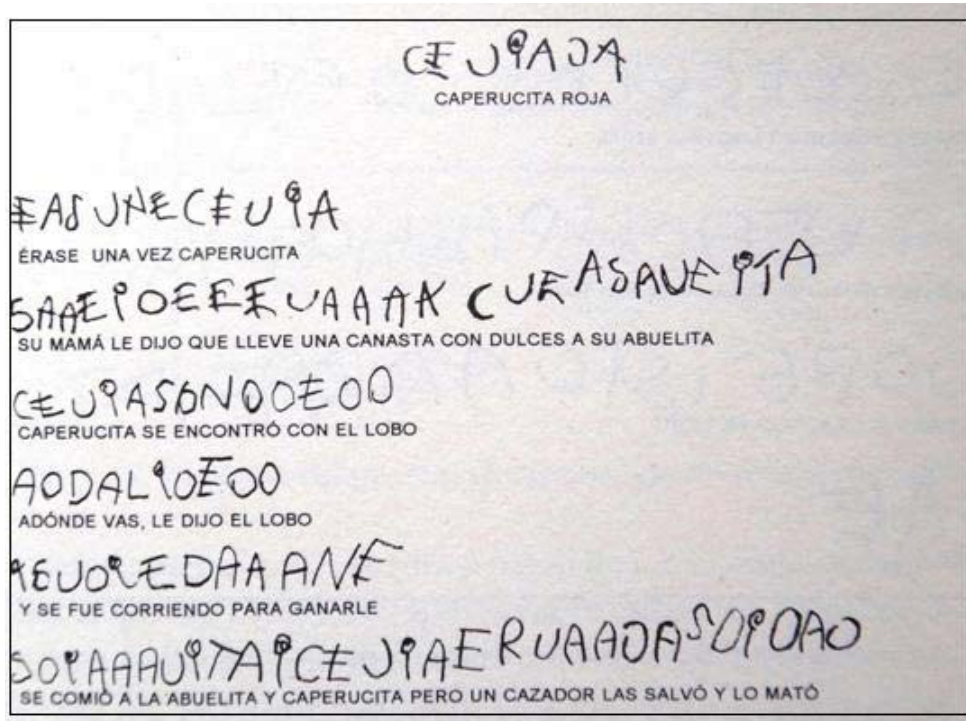 CEUIAJA
CAPERUCITA ROJA
EASUNECEUIA
ÉRASE UNA VEZ CAPERUCITA
SAAEIOEEEUAAAA CUEASAUEITA
SU MAMÁ LE DIJO QUE LLEVE UNA CANASTA CON DULCES A SU ABUELITA
CEUIASONOOEOO
CAPERUCITA SE ENCONTRÓ CON EL LOBO
AODALIOEOO
ADÓNDE VAS, LE DIJO EL LOBO
Y SE FUE CORRIENDO PARA GANARLE
SE COMIÓ A LA ABUELITA Y CAPERUCITA PERO UN CAZADOR LAS SALVÓ Y LO MATÓ